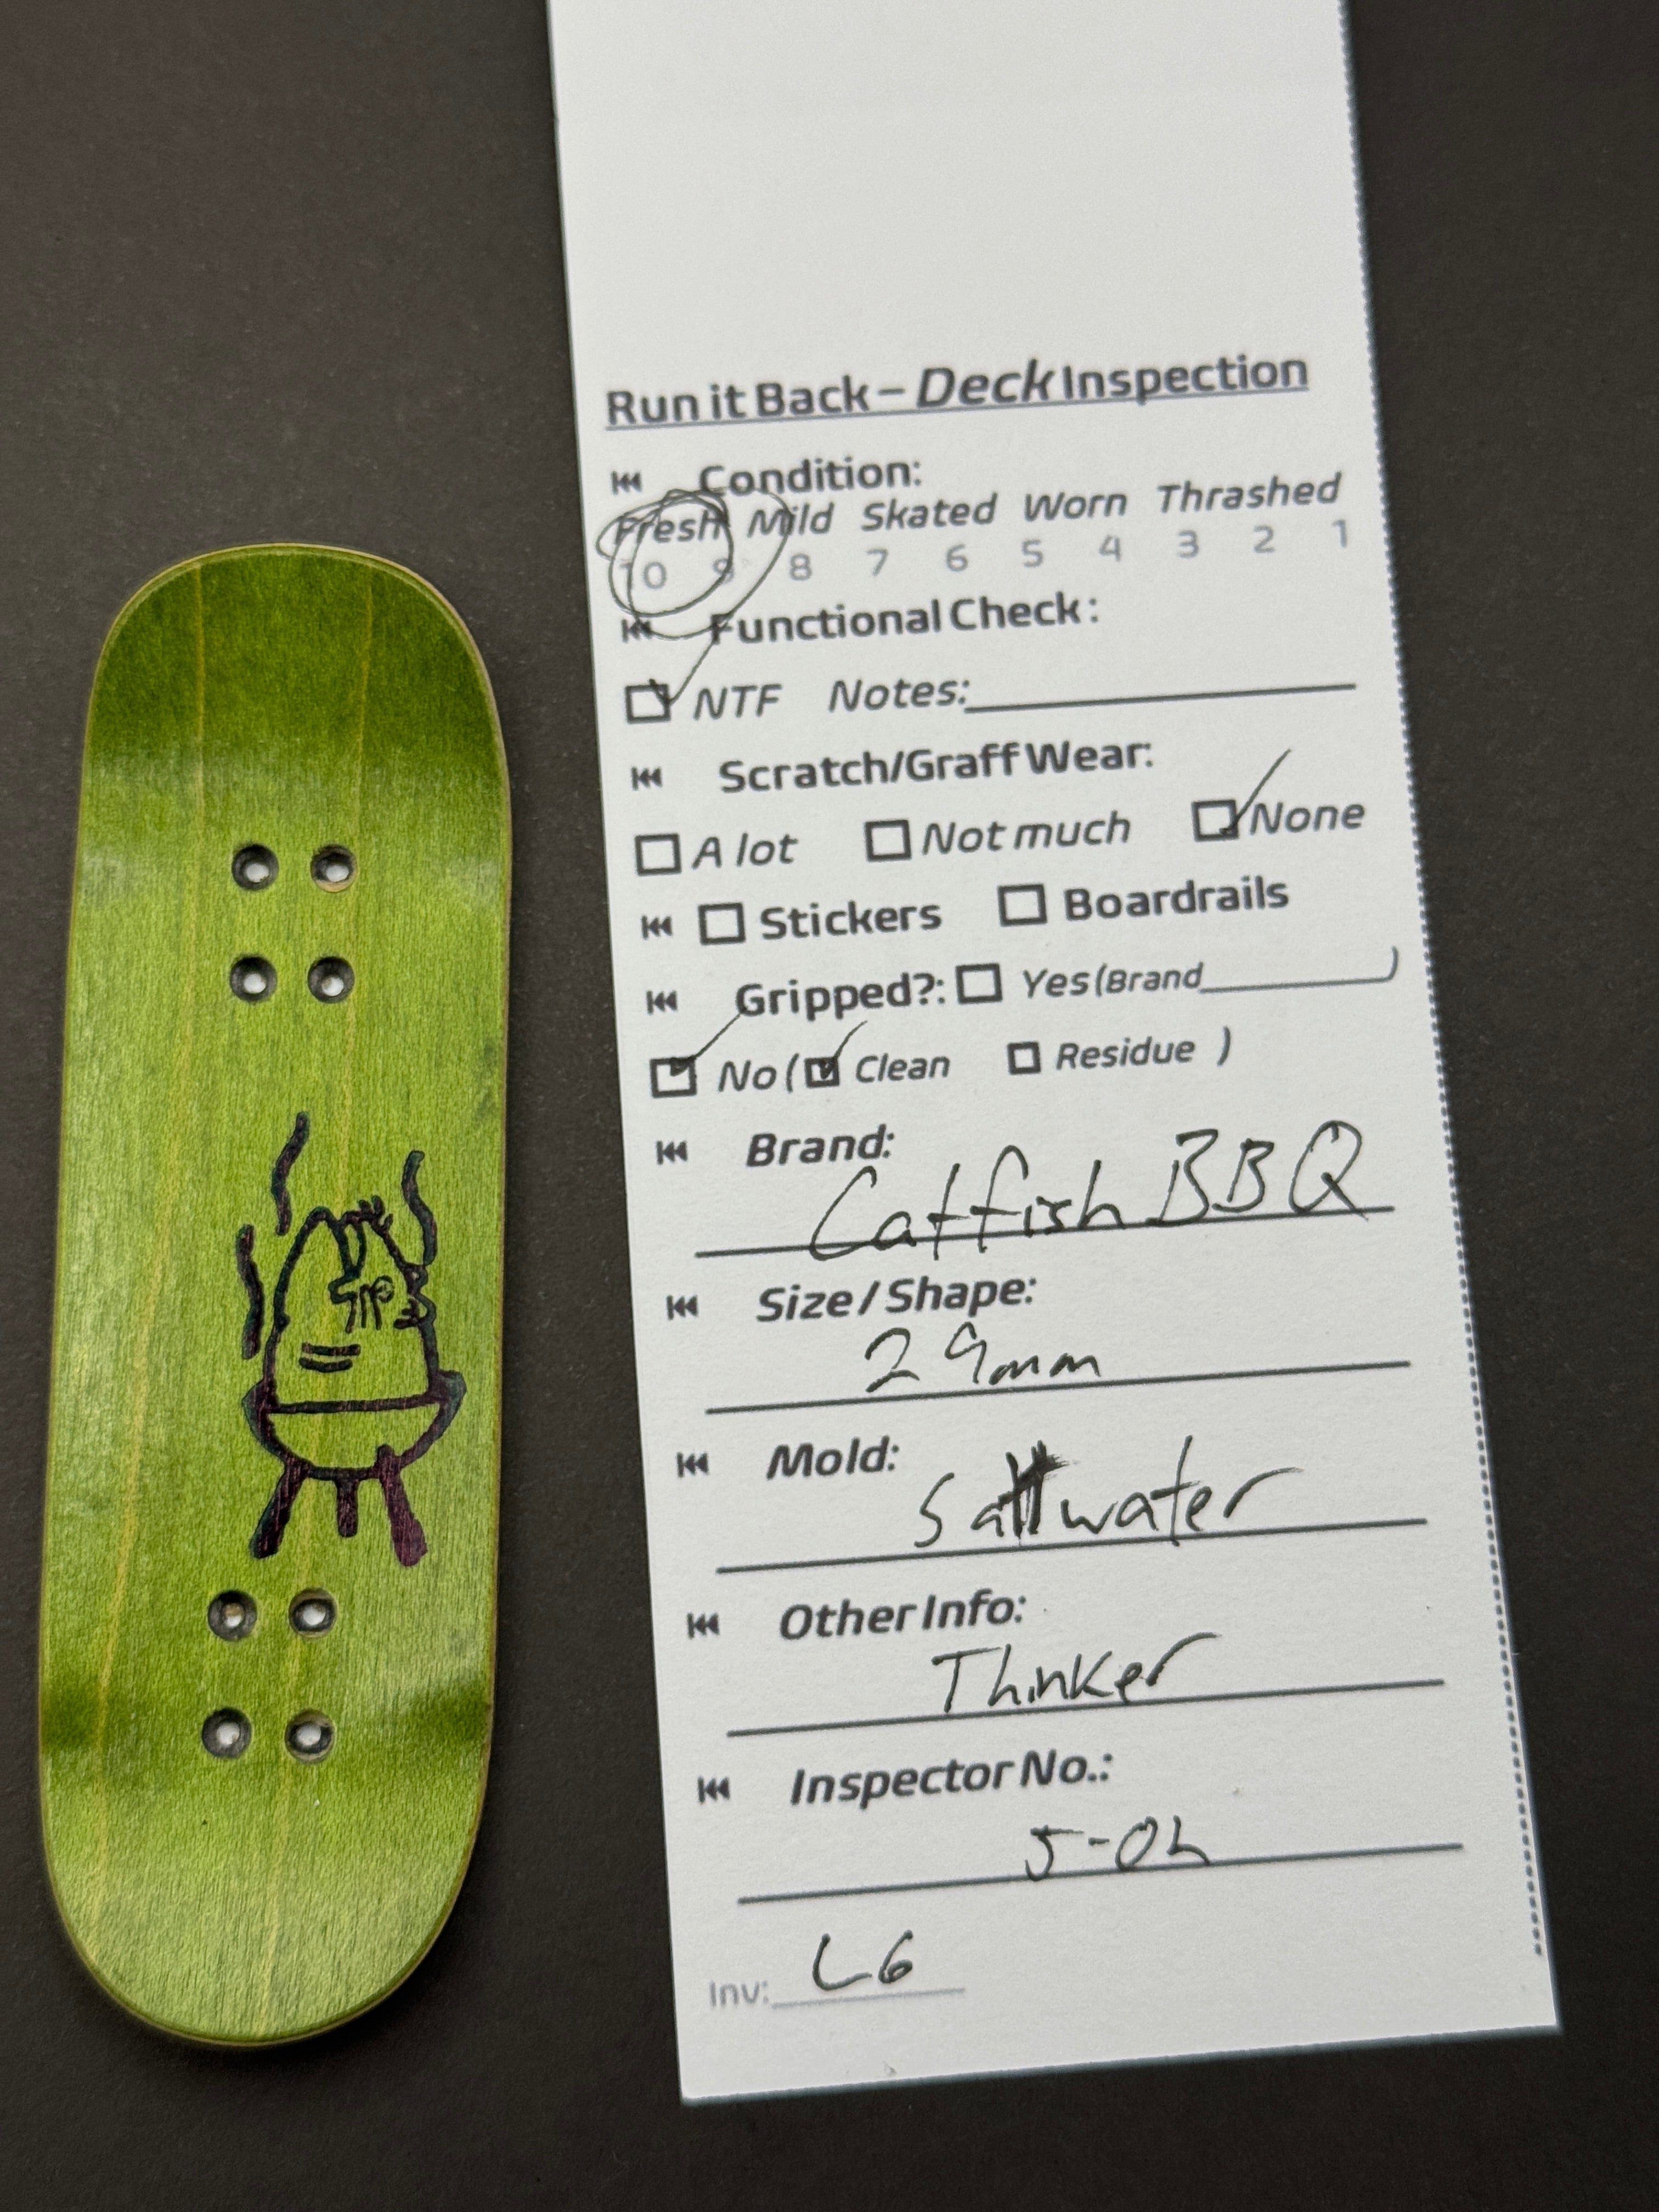 Run it Back – Deck Inspection
Condition:
Fresh Mild Skated Worn Thrashed
10 9 8 7 6 5 4 3 2 1
Functional Check:
NTF Notes:
Scratch/Graff Wear:
A lot Not much None
Stickers Boardrails
Gripped?: Yes (Brand )
No ( Clean Residue )
Brand:
Catfish BBQ
Size / Shape:
29mm
Mold:
Saltwater
Other Info:
Thinker
Inspector No.:
5-Oh
Inv: L6